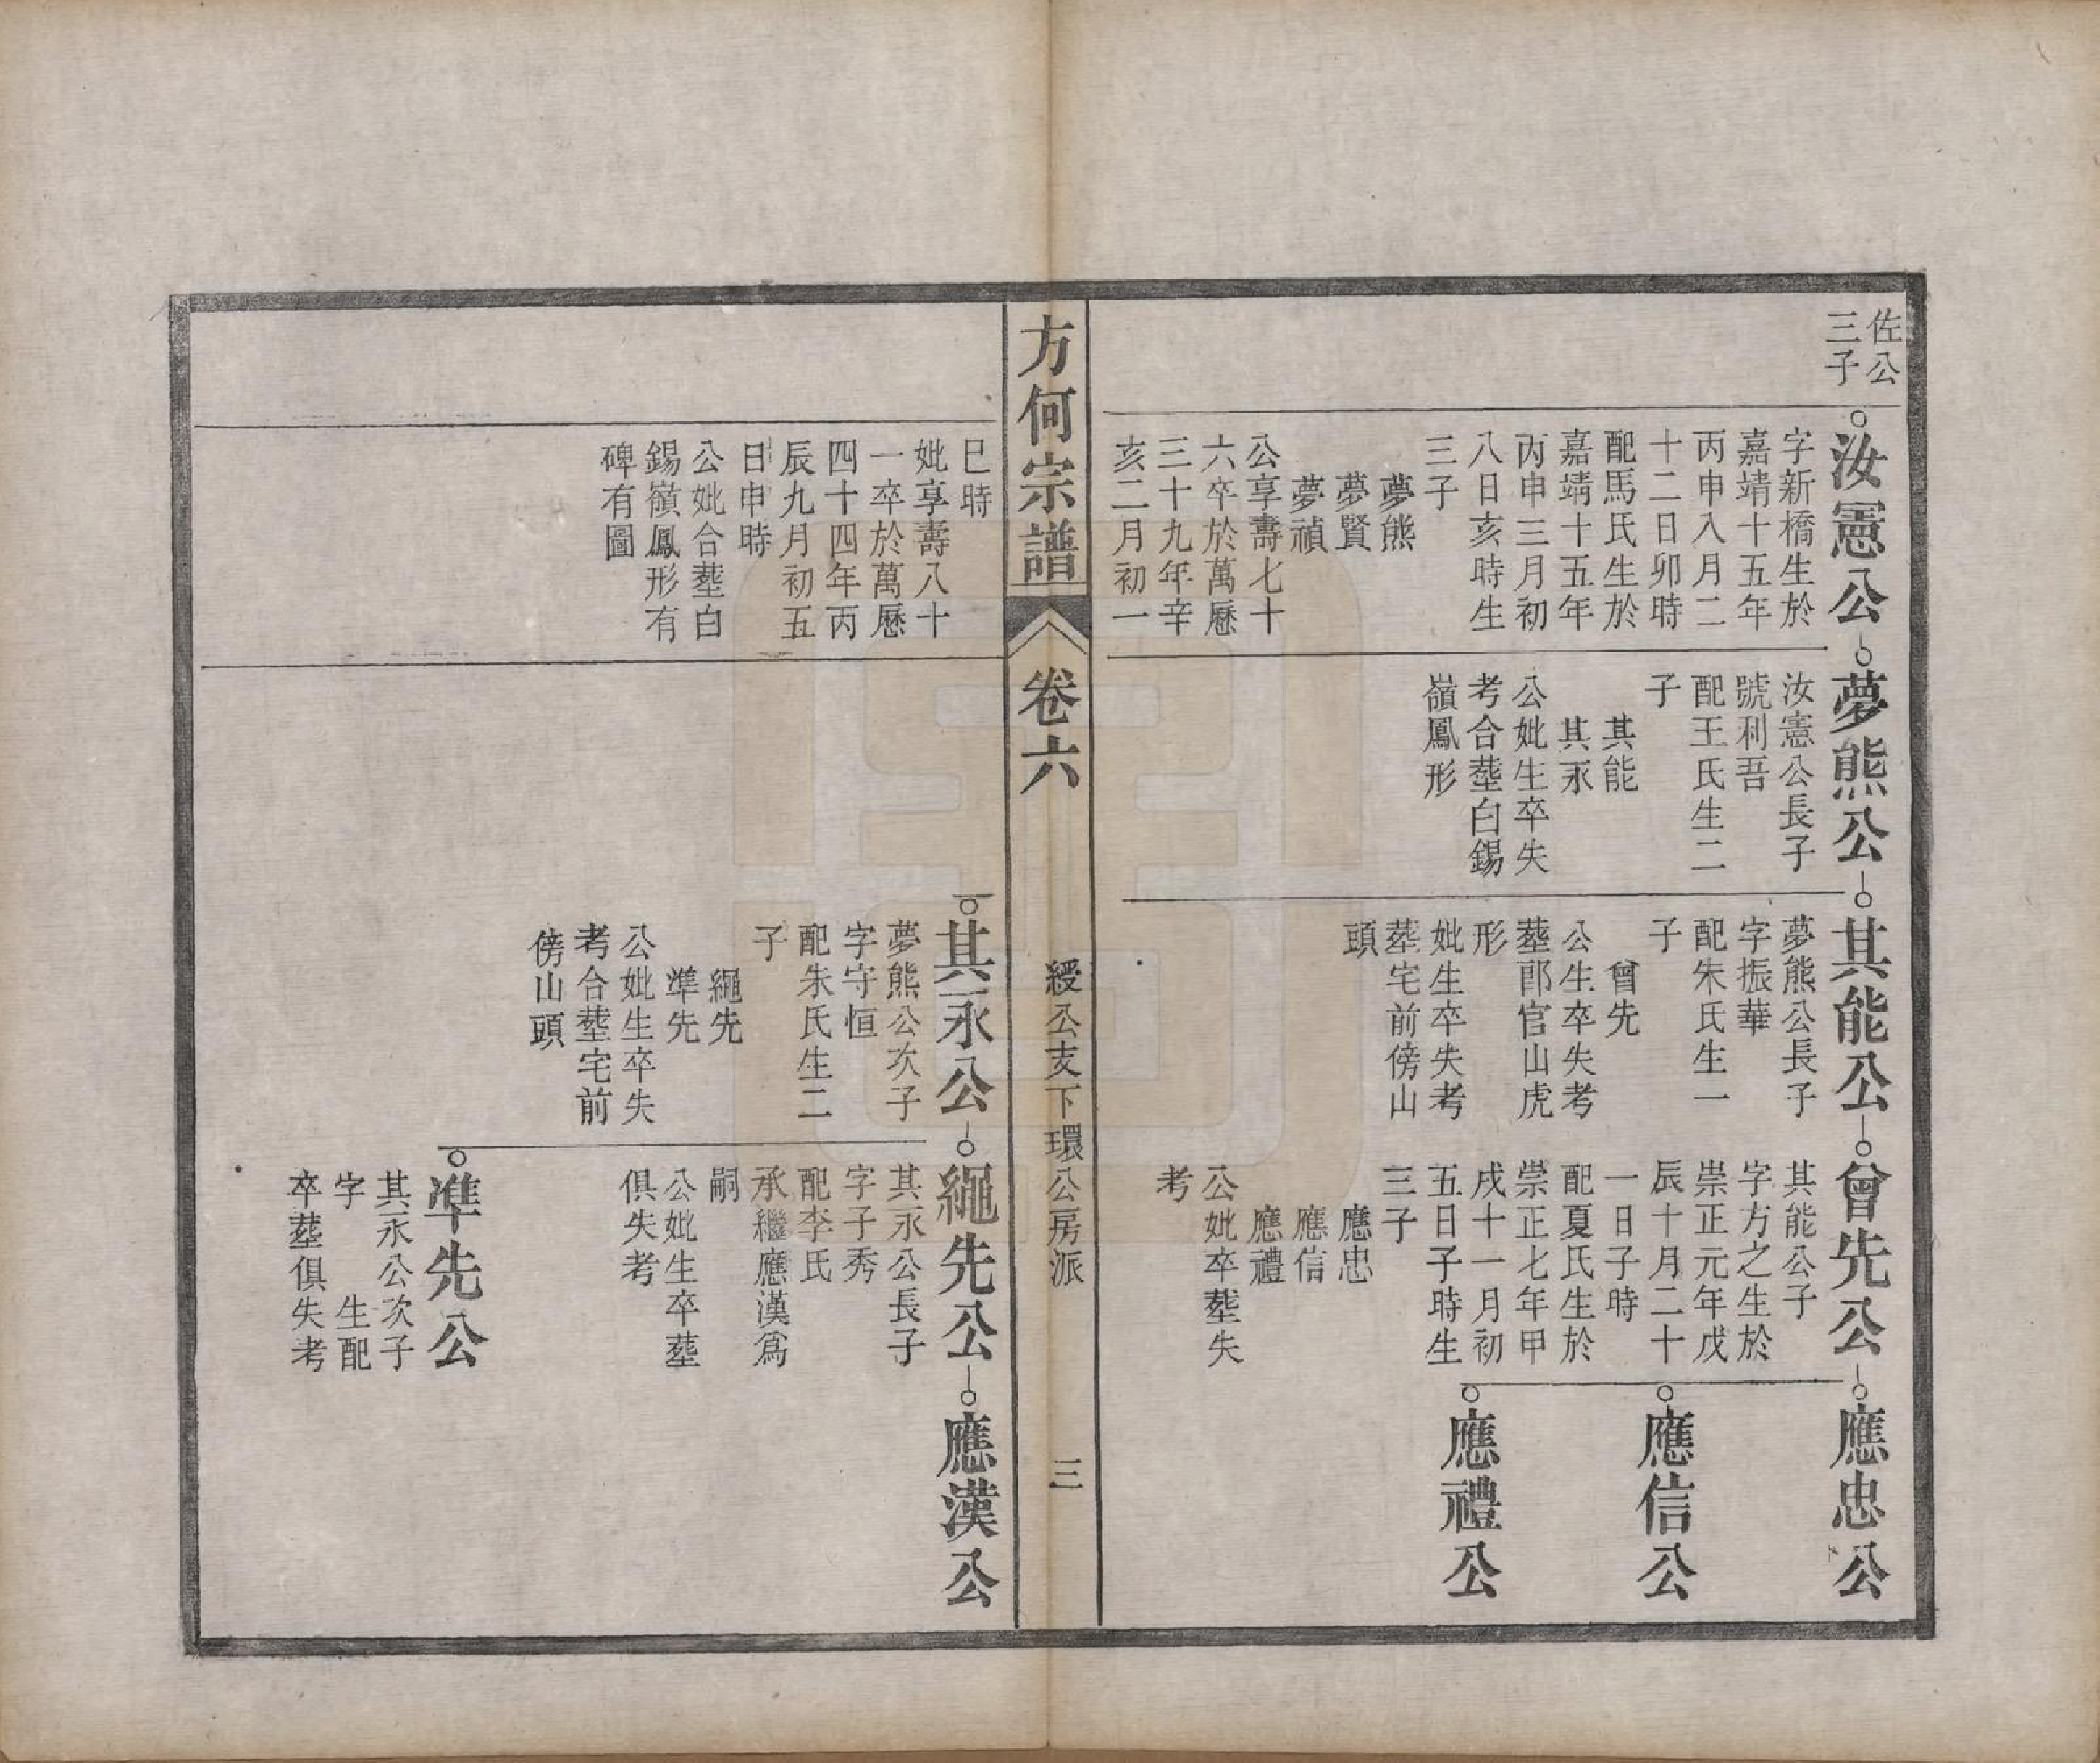 佐公
三子
汝憲公
字新橋生於
嘉靖十五年
丙申八月二
十二日卯時
配馬氏生於
嘉靖十五年
丙申三月初
八日亥時生
三子
夢熊
夢賢
夢禎
公享壽七十
六卒於萬曆
三十九年辛
亥二月初一
夢熊公
汝憲公長子
號利吾
配王氏生二
子
其能
其永
公妣生卒失
考合塟白錫
嶺鳳形
其能公
夢熊公長子
字振華
配朱氏生一
子
曾先
公生卒失考
塟郎官山虎
形
妣生卒失考
塟宅前傍山
頭
曾先公
其能公子
字方之生於
崇正元年戊
辰十月二十
一日子時
配夏氏生於
崇正七年甲
戌十一月初
五日子時生
三子
應忠
應信
應禮
公妣卒塟失
考
應忠公
應信公
應禮公
方何宗譜
卷六
綬公支下環公房派
三
巳時
妣享壽八十
一卒於萬曆
四十四年丙
辰九月初五
日申時
公妣合塟白
錫嶺鳳形有
碑有圖
其永公
夢熊公次子
字守恒
配朱氏生二
子
繩先
準先
公妣生卒失
考合塟宅前
傍山頭
繩先公
其永公長子
字子秀
配李氏
承繼應漢爲
嗣
公妣生卒塟
俱失考
準先公
其永公次子
字　　生配
卒塟俱失考
應漢公